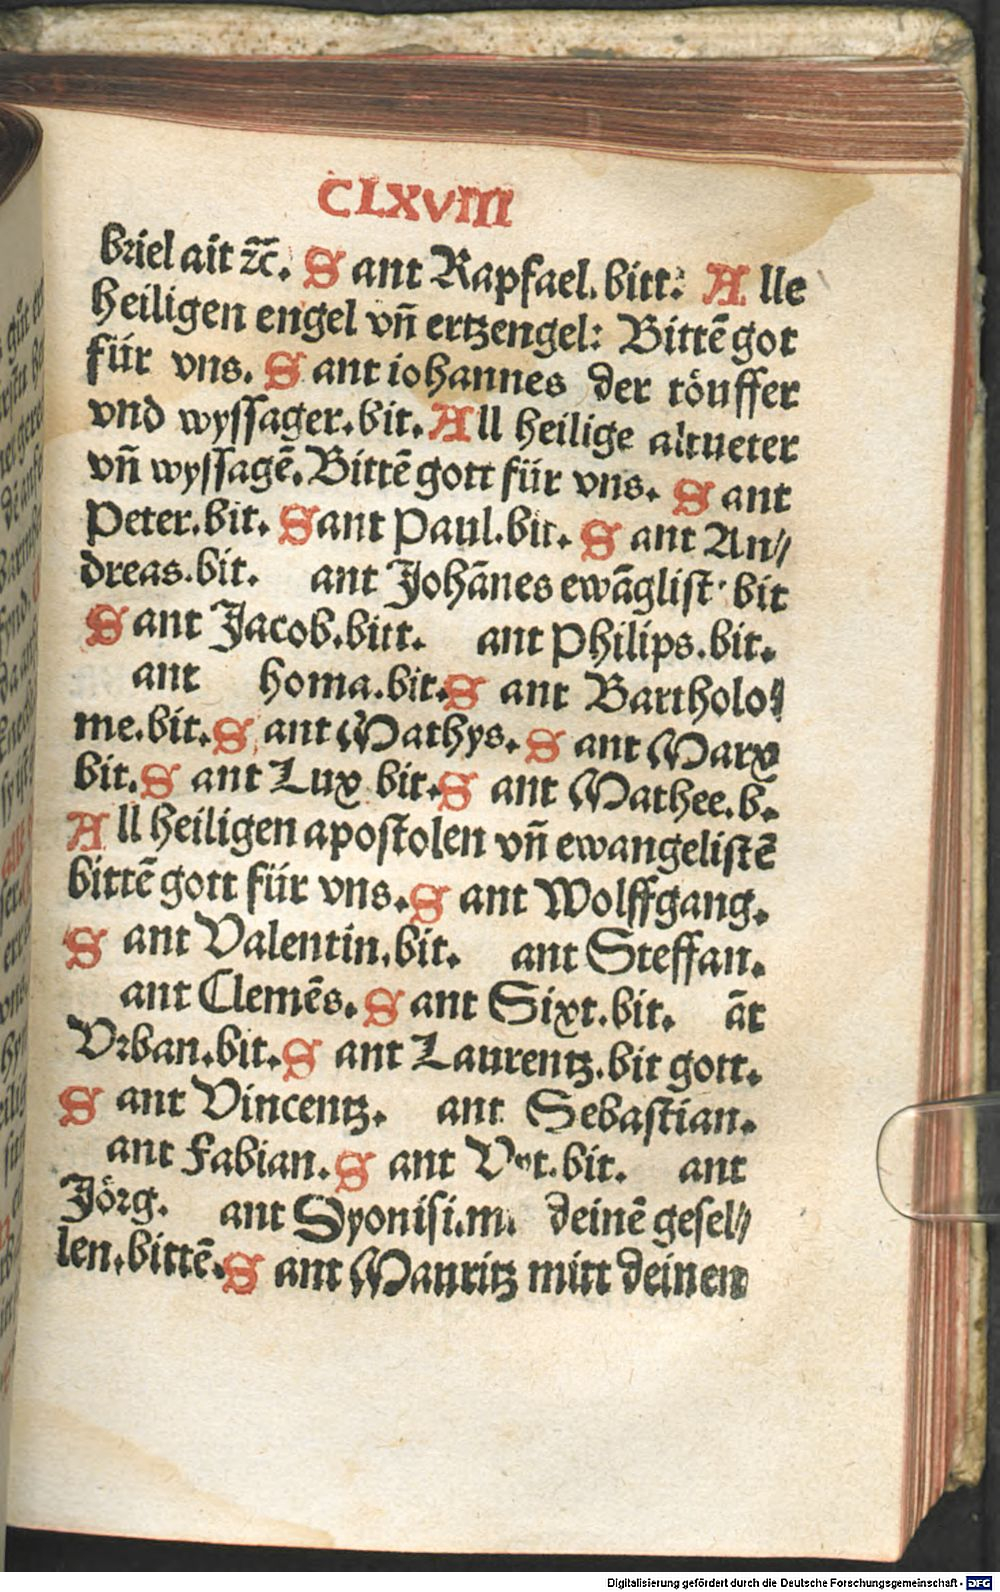 CLXVIII
briel ait ⁊c̄. Sant Rapfael. bitt: Alle
heiligen engel vn̄ ertzengel: Bittē got
für vns. Sant iohannes der töuffer
vnd wyſſager. bit. All heilige altueter
vn̄ wyſſagē. Bittē gott für vns. Sant
Peter. bit. Sant Paul. bit. Sant An⸗
dreas. bit. ant Johānes ewāgliſt· bit
Sant Jacob. bitt. ant Philips. bit.
ant homa. bit. Sant Bartholo⸗
me. bit. Sant Mathys. Sant Marx
bit. Sant Lux bit. Sant Mathee. b̄.
All heiligen apoſtolen vn̄ ewangeliſtē
bittē gott für vns. Sant Wolffgang.
Sant Valentin. bit. ant Steffan.
ant Clemēs. Sant Sixt. bit. āt
Vrban. bit. Sant Laurentz. bit gott.
Sant Vincentz. ant Sebaſtian.
ant Fabian. Sant Vyt. bit. ant
Jörg. ant Dyoniſi. m. deinē geſel⸗
len. bittē. Sant Mauritz mitt deinen
Digitalisierung gefördert durch die Deutsche Forschungsgemeinschaft - DFG